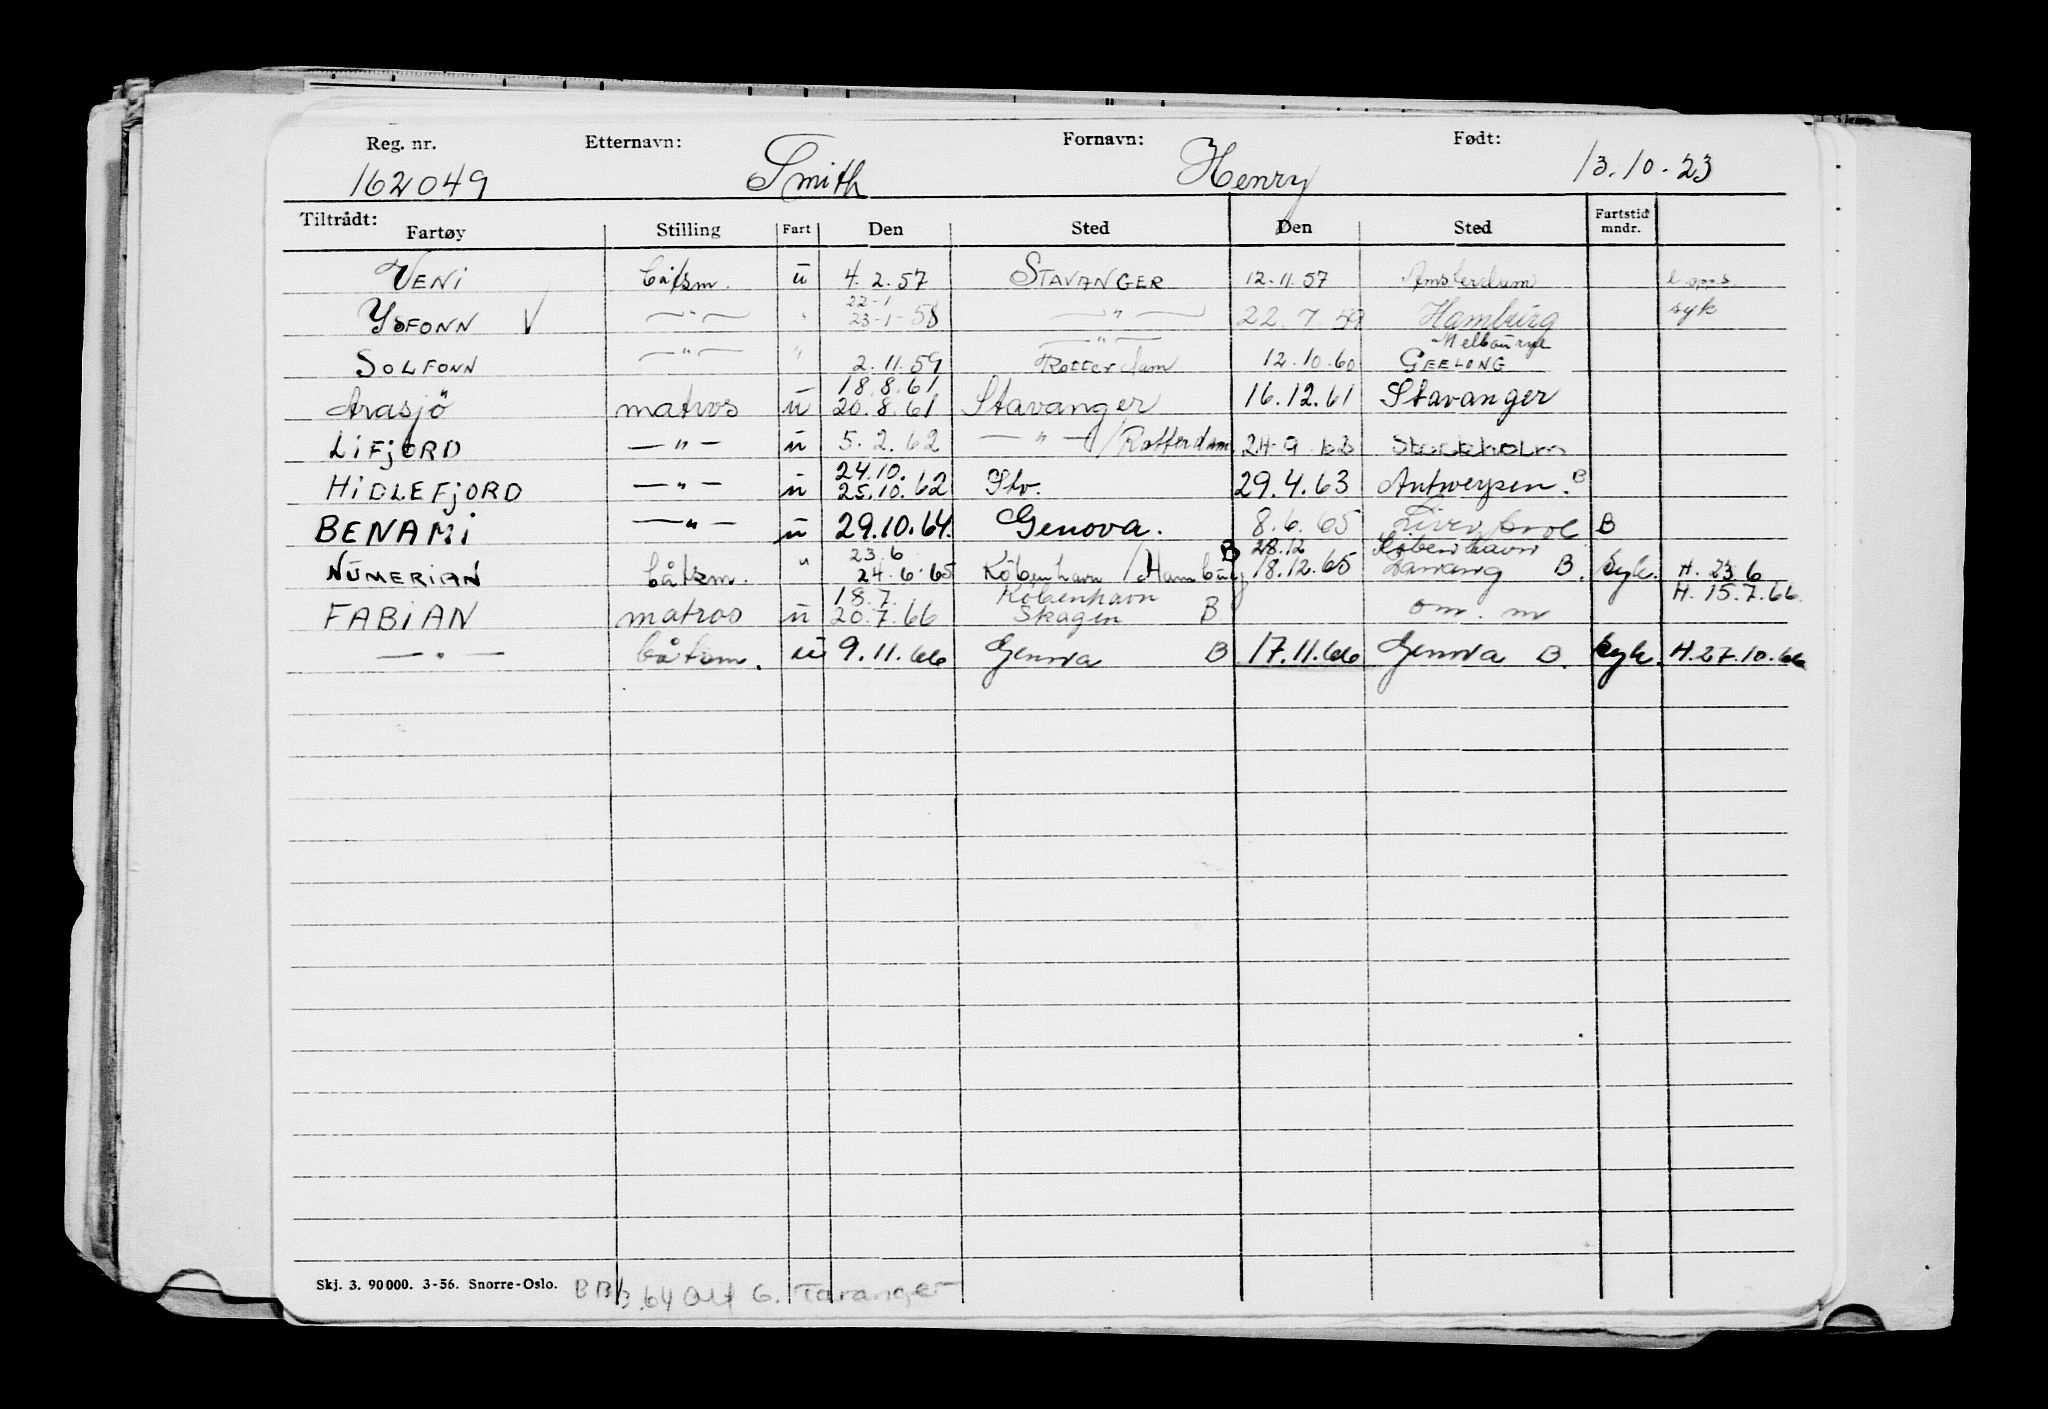 Reg. nr. Etternavn: Fornavn: Født:
162049 Smith Henry 13.10.23
Tiltrådt: Fartøy Stilling Fart Den Sted Den Sted Fartstid mndr.
VENI båtsm. ü 4.2.57 STAVANGER 12.11.57 Amsterdam
22-1
YSFONN V — " — " 23-1-58 — " — 22.7.59 Hamburg syk
— " — Melbourne
SOLFONN — " — " 2.11.59 Rotterdam 12.10.60 GEELONG
18.8.61
Arasjö matros ü 20.8.61 Stavanger 16.12.61 Stavanger
LIFJORD — " — ü 5.2.62 — " — / Rotterdam 24-9 Stockholm
24.10.
HIDLEFJORD — " — ü 25.10.62 Stv. 29.4.63 Antwerpen. B
BENAMI — " — ü 29.10.64. Genova. 8.6.65 Liverpool B
23.6 B 28.12 København
NUMERIAN båtsm. " 24.6.65 København / Hamburg 18.12.65 B. syk. H. 23.6
18.7. København H. 15.7.66.
FABIAN matros ü 20.7.66 Skagen B. om. m
— " — båtsm. ü 9.11.66 Genova B 17.11.66 Genova B. syk. H. 27.10.66
Skj. 3. 90 000. 3-56. Snorre-Oslo. G. Taranger